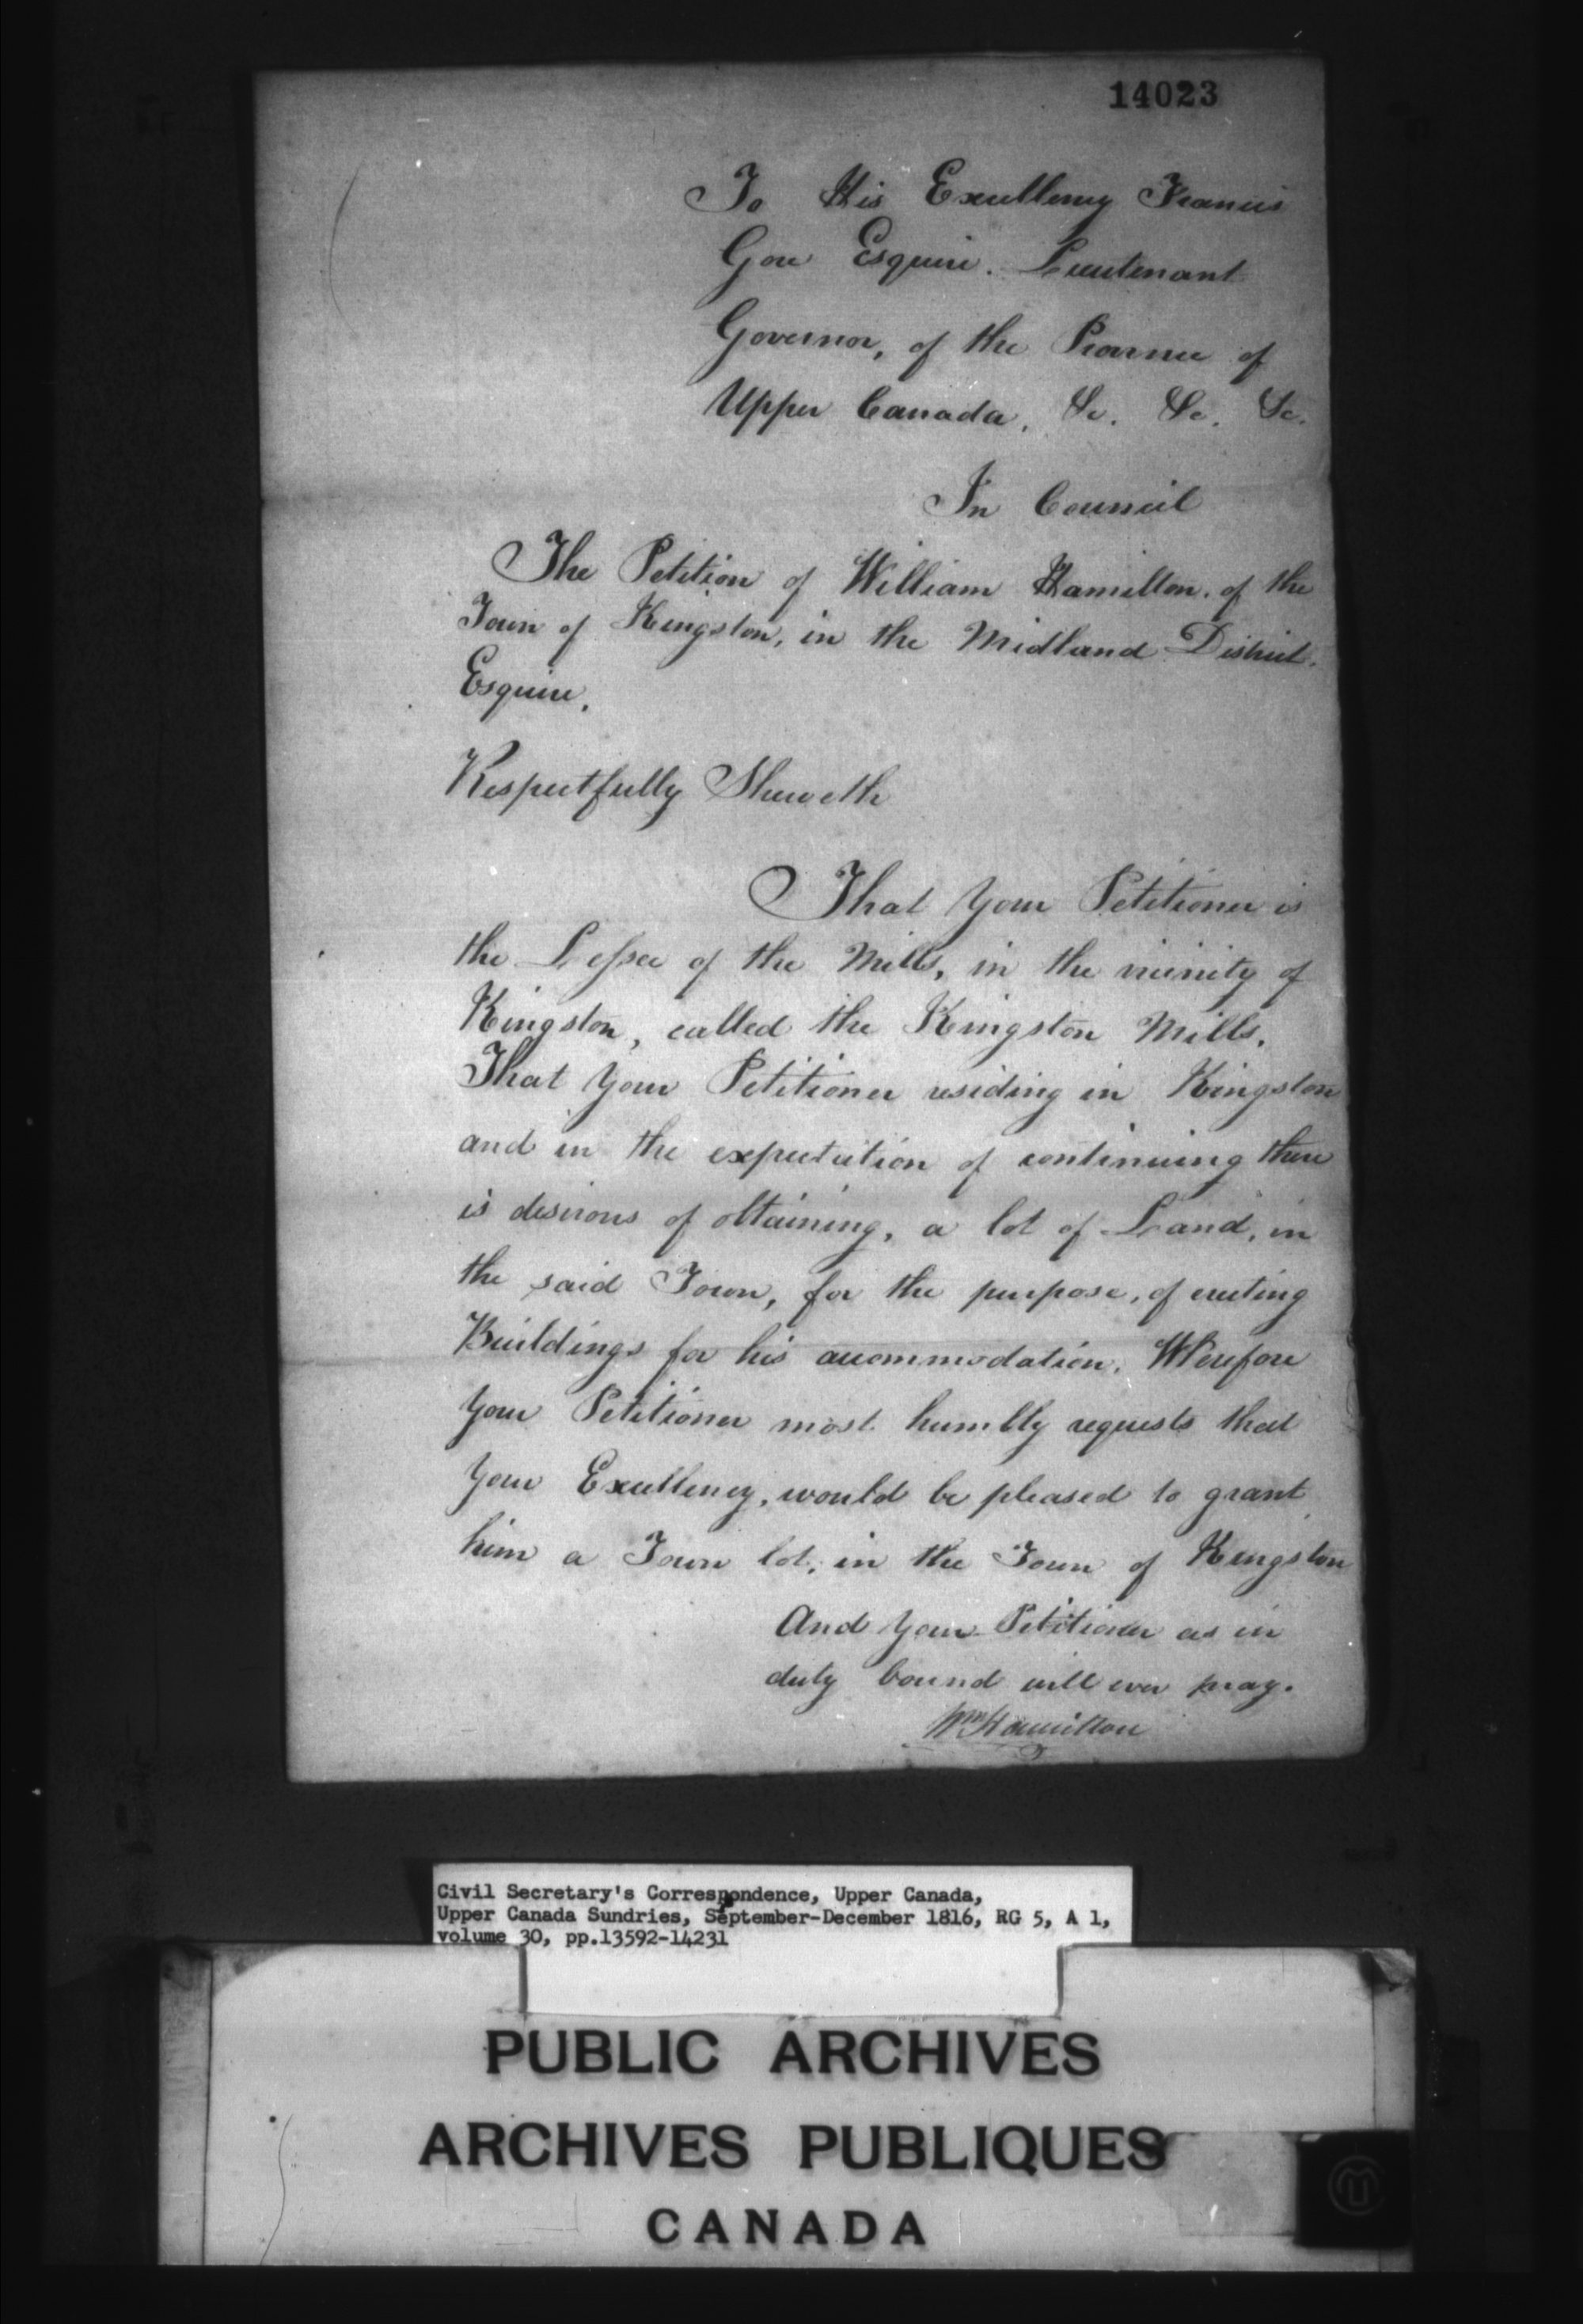 14023
To His Excellency Francis
Gore Esquire. Lieutenant
Governor, of the Province of
Upper Canada, &c. &c. &c.
In Council
The Petition of William Hamilton. of the
Town of Kingston, in the Midland District.
Esquire.
Respectfully Sheweth
That your Petitioner is
the Lessee of the Mills, in the vicinity of
Kingston, called the Kingston Mills.
That your Petitioner residing in Kingston
and in the expectation of continuing there
is desirous of obtaining, a lot of Land, in
the said Town, for the purpose, of erecting
Buildings for his accommodation. Wherefore
your Petitioner most humbly requests that
your Excellency, would be pleased to grant
him a Town lot, in the Town of Kingston
And your Petitioner as in
duty bound will ever pray.
Wm Hamilton
Civil Secretary's Correspondence, Upper Canada,
Upper Canada Sundries, September-December 1816, RG 5, A 1,
volume 30, pp.13592-14231
PUBLIC ARCHIVES
ARCHIVES PUBLIQUES
CANADA